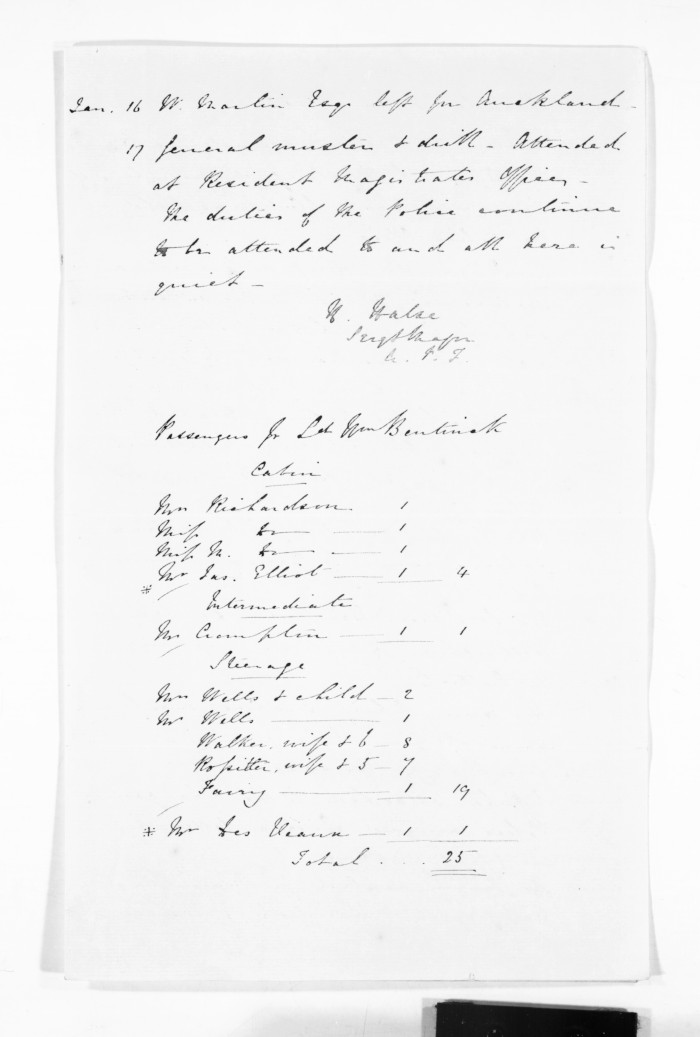 Jan. 16 W. Martin Esqr left for Auckland -
17 General muster & drill - Attended
at Resident Magistrates Office -
The duties of the Police continue
to be attended to and all here is
quiet -
H. Halse
Sergt Major
A. P. F.
Passengers pr Ld Wm Bentinck
Cabin
Mrs Richardson 1
Miss Do — 1
Miss M. Do — 1
* Mr Jas. Elliot — 1 4
Intermediate
Mr Crompton — 1 1
Steerage
Mrs Wells & child - 2
Mr Wells — 1
Walker, wife & 6 - 8
Rossitter, wife & 5 - 7
— 1 19
* Mr — 1 1
Total . . . 25